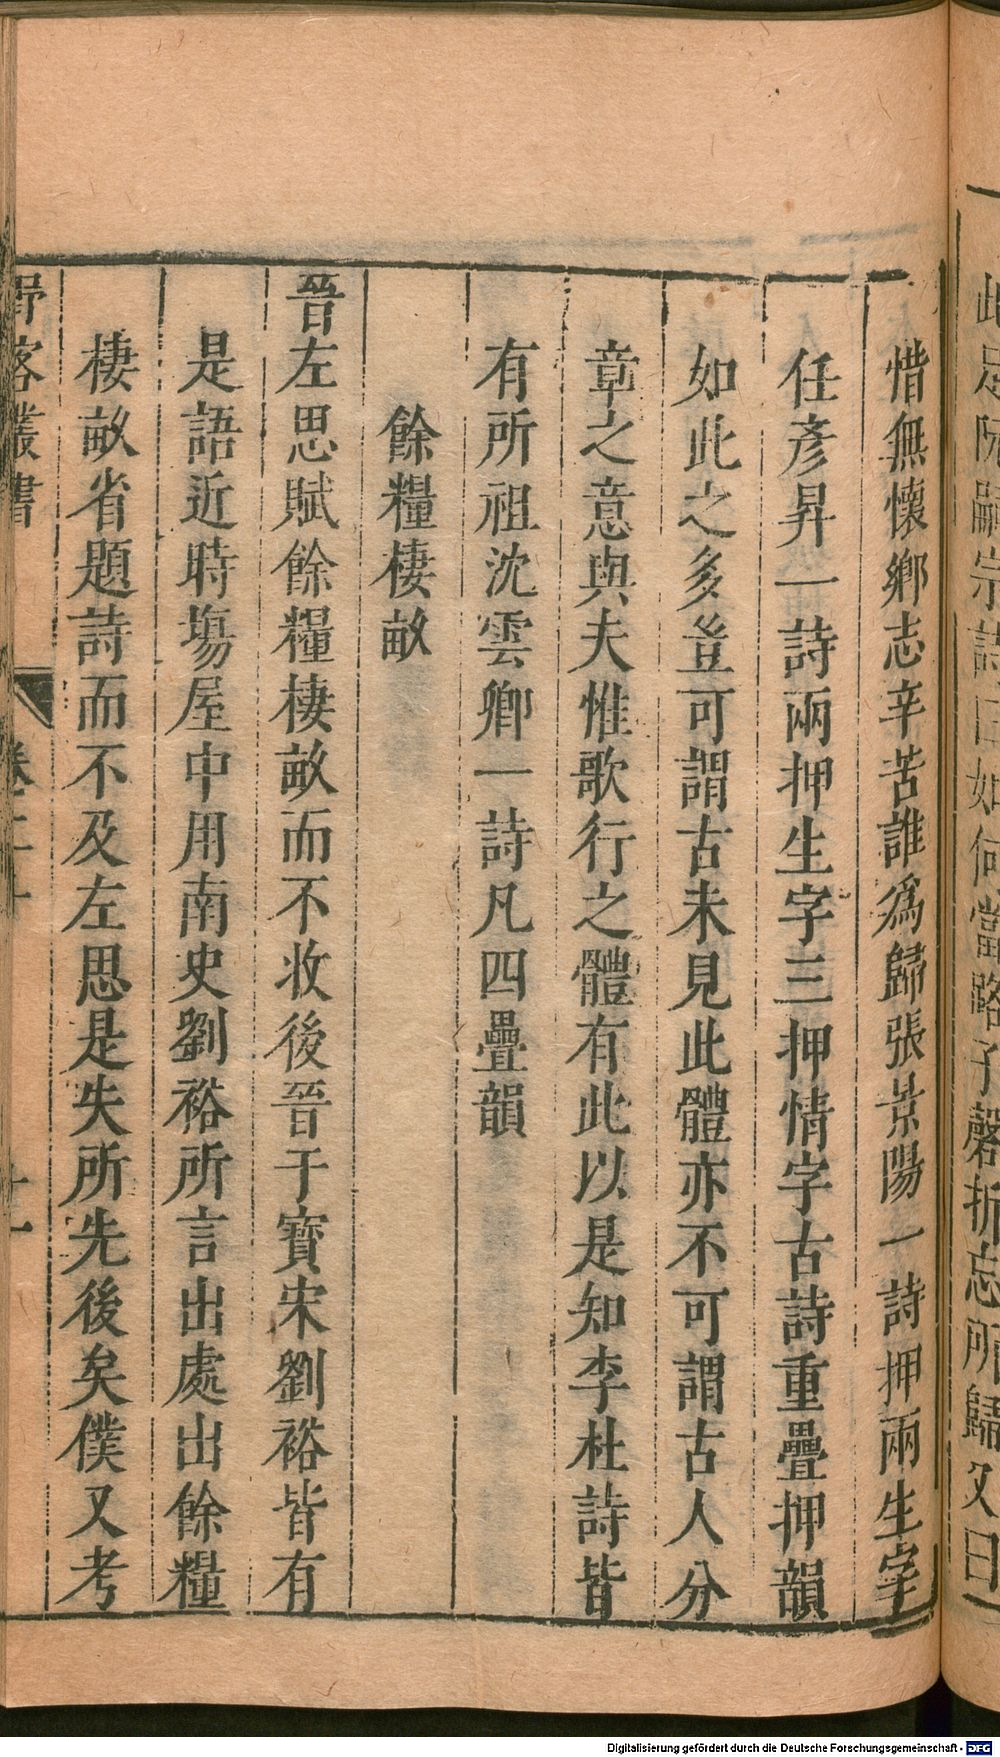 此足阮嗣宗詩曰如何當路子磬折忘所歸又曰
惜無懷鄉志辛苦誰為歸張景陽一詩押兩生字
任彥昇一詩兩押生字三押情字古詩重疊押韻
如此之多豈可謂古未見此體亦不可謂古人分
章之意與夫惟歌行之體有此以是知李杜詩皆
有所祖沈雲卿一詩凡四疊韻
餘糧棲畝
晉左思賦餘糧棲畝而不收後晉于寶宋劉裕皆有
是語近時塲屋中用南史劉裕所言出處出餘糧
棲畝省題詩而不及左思是失所先後矣僕又考
野客叢書 卷二十 十一
Digitalisierung gefördert durch die Deutsche Forschungsgemeinschaft - DFG